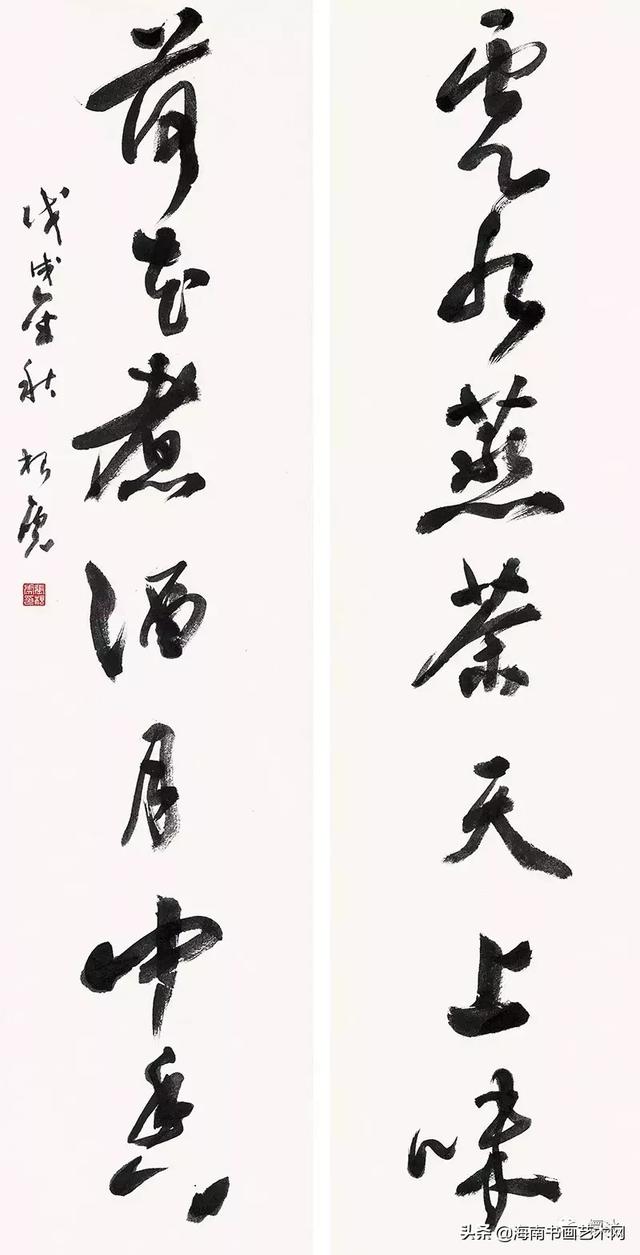 水蒸茶天上味
荷花煮酒月中香
戊戌金秋
头条 @海南书画艺术网